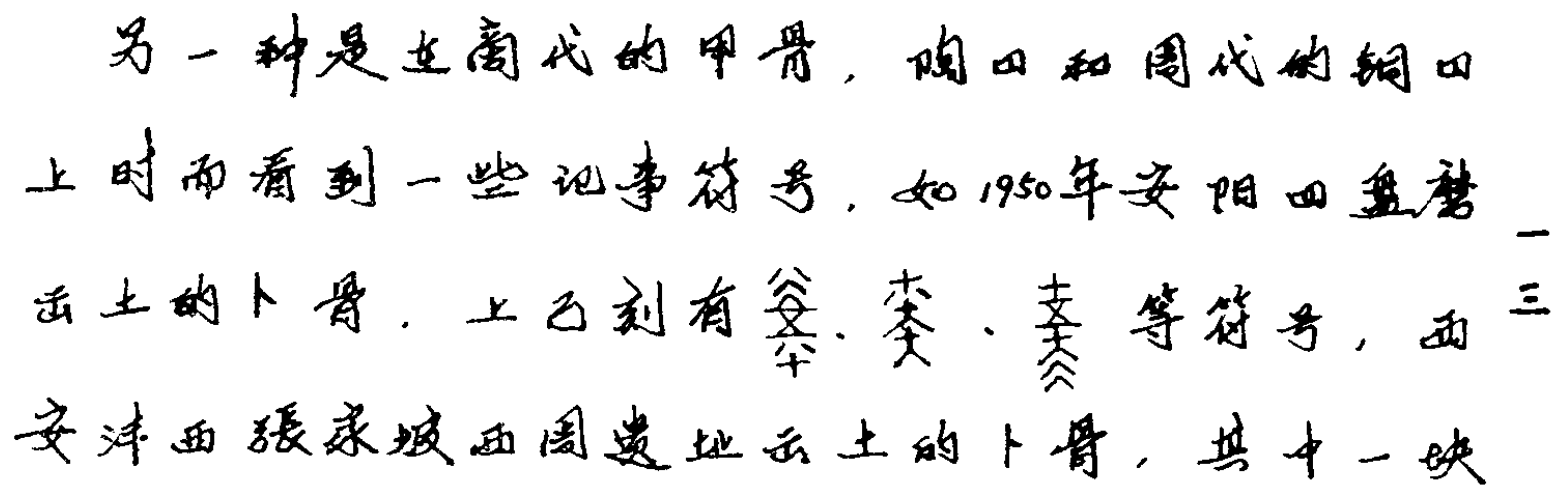 另一种是在商代的甲骨，陶器和周代的铜器
上时而看到一些记事符号，如1950年安阳四盘磨
出土的卜骨，上已刻有、、等符号，西
安沣西張家坡西周遗址出土的卜骨，其中一块
一三